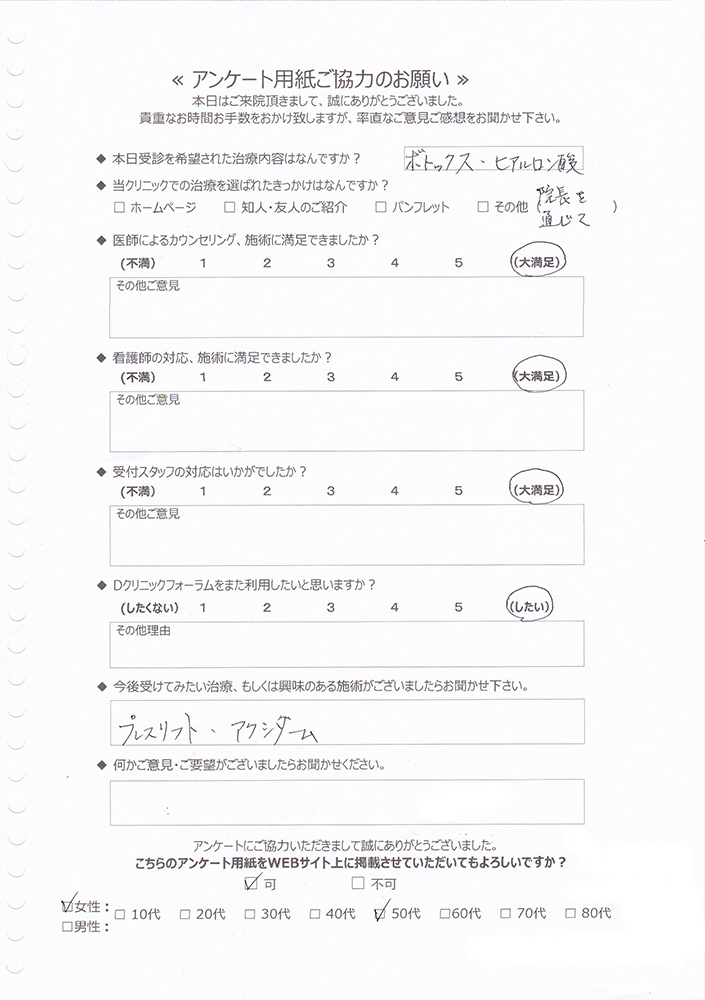 ≪ アンケート用紙ご協力のお願い ≫
本日はご来院頂きまして、誠にありがとうございました。
貴重なお時間お手数をおかけ致しますが、率直なご意見ご感想をお聞かせ下さい。
◆ 本日受診を希望された治療内容はなんですか？ ボトックス・ヒアルロン酸
◆ 当クリニックでの治療を選ばれたきっかけはなんですか？
□ ホームページ □ 知人・友人のご紹介 □ パンフレット □ その他 (院長を通じて)
◆ 医師によるカウンセリング、施術に満足できましたか？
(不満) 1 2 3 4 5 (大満足)
その他ご意見
◆ 看護師の対応、施術に満足できましたか？
(不満) 1 2 3 4 5 (大満足)
その他ご意見
◆ 受付スタッフの対応はいかがでしたか？
(不満) 1 2 3 4 5 (大満足)
その他ご意見
◆ Dクリニックフォーラムをまた利用したいと思いますか？
(したくない) 1 2 3 4 5 (したい)
その他理由
◆ 今後受けてみたい治療、もしくは興味のある施術がございましたらお聞かせ下さい。
プレスリフト、アクシダーム
◆ 何かご意見・ご要望がございましたらお聞かせください。
アンケートにご協力いただきまして誠にありがとうございました。
こちらのアンケート用紙をWEBサイト上に掲載させていただいてもよろしいですか？
☑ 可 □ 不可
☑女性： □ 10代 □ 20代 □ 30代 □ 40代 ☑ 50代 □60代 □ 70代 □ 80代
□男性：